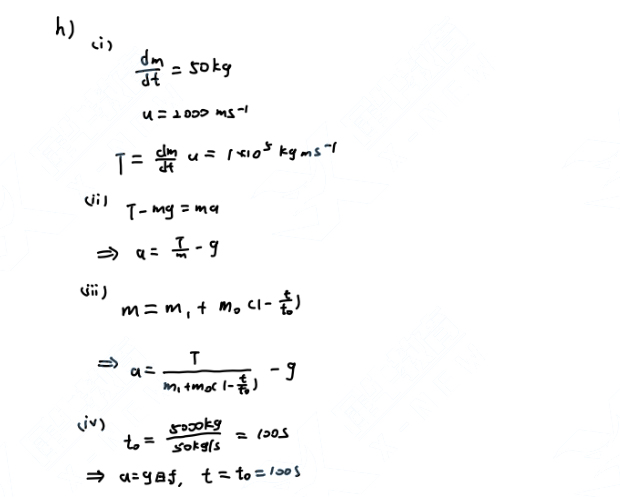 h)
(i)
dm/dt = 50kg
u = 2000 ms⁻¹
T = dm/dt u = 1×10⁵ kgms⁻¹
(ii) T - mg = ma
⇒ a = T/m - g
(iii) m = m₁ + m₀ (1 - t/t₀)
⇒ a = T/(m₁ + m₀(1 - t/t₀)) - g
(iv) t₀ = 5000kg/50kg/s = 100s
⇒ a = g 时, t = t₀ = 100s